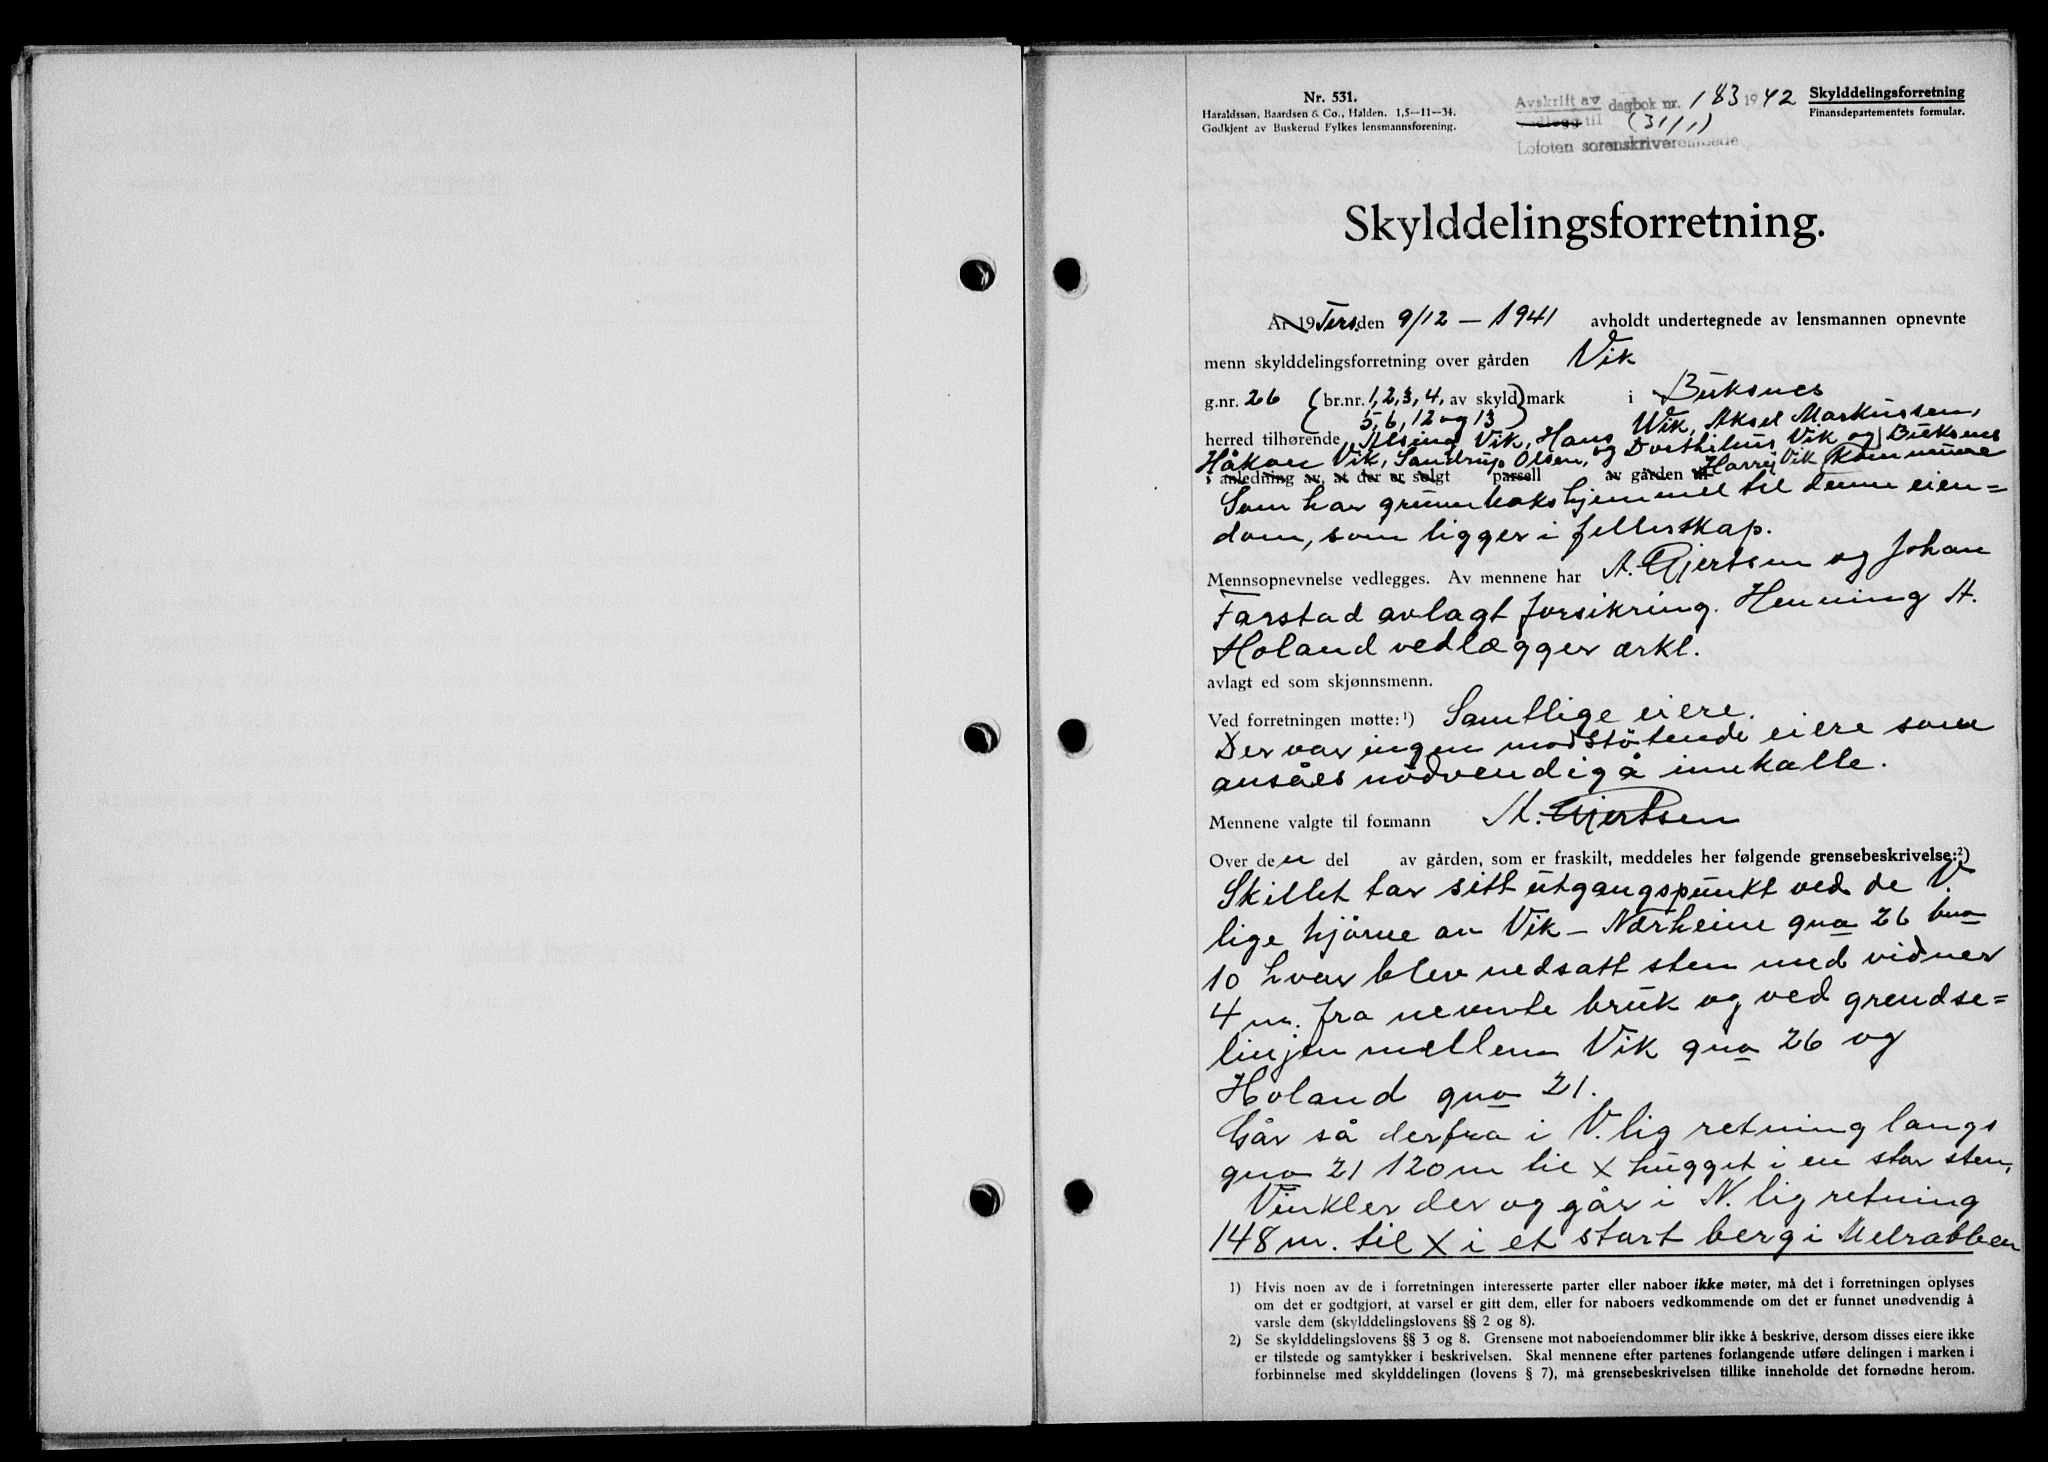 Nr. 531.
Haraldssøn, Baardsen & Co., Halden. 1,5—11—34.
Godkjent av Buskerud Fylkes lensmannsforening.
Avskrift av dagbok nr. 183 1942
til (31/1)
Lofoten sorenskriverembede
Skylddelingsforretning
Finansdepartementets formular.
Skylddelingsforretning.
År 19 Tirs. den 9/12 - 1941 avholdt undertegnede av lensmannen opnevnte
menn skylddelingsforretning over gården Vik
g.nr. 26 (br.nr. 1, 2, 3, 4, av skyld) mark i Buksnes
5, 6, 12 og 13
herred tilhørende Vik, Hans Wik, Aksel Markussen,
Håkon Vik, Sandrup Olsen, og Dorthilius Vik og Buksnes
Harry Vik Kommune
i anledning av, at der er solgt parsell av gården til
Som har grunnbokshjemmel til denne eien=
dom, som ligger i fellesskap.
Mennsopnevnelse vedlegges. Av mennene har A. Gjertsen og Johan
Farstad avlagt forsikring. Henning H.
Holand vedlægger ærkl.
avlagt ed som skjønnsmenn.
Ved forretningen møtte:¹) Samtlige eiere.
Der var ingen modstötende eiere som
ansåes nödvendig å innkalle.
Mennene valgte til formann A. Gjertsen
Over den del av gården, som er fraskilt, meddeles her følgende grensebeskrivelse:²)
Skillet tar sitt utgangspunkt ved de V.
lige hjörne av Vik - Nærheim gno 26 bno
10 hvor blev nedsatt sten med vidner
4 m. fra nevnte bruk og ved grendse=
linjen mellem Vik gno 26 og
Holand gno 21.
Går så derfra i V.lig retning langs
gno 21 120 m til x hugget i en stor sten,
Vinkler der og går i N.lig retning
148 m. til x i et stort berg i Melrabben
1) Hvis noen av de i forretningen interesserte parter eller naboer ikke møter, må det i forretningen oplyses
om det er godtgjort, at varsel er gitt dem, eller for naboers vedkommende om det er funnet unødvendig å
varsle dem (skylddelingslovens §§ 2 og 8).
2) Se skylddelingslovens §§ 3 og 8. Grensene mot naboeiendommer blir ikke å beskrive, dersom disses eiere ikke
er tilstede og samtykker i beskrivelsen. Skal mennene efter partenes forlangende utføre delingen i marken i
forbinnelse med skylddelingen (lovens § 7), må grensebeskrivelsen tillike inneholde det fornødne herom.